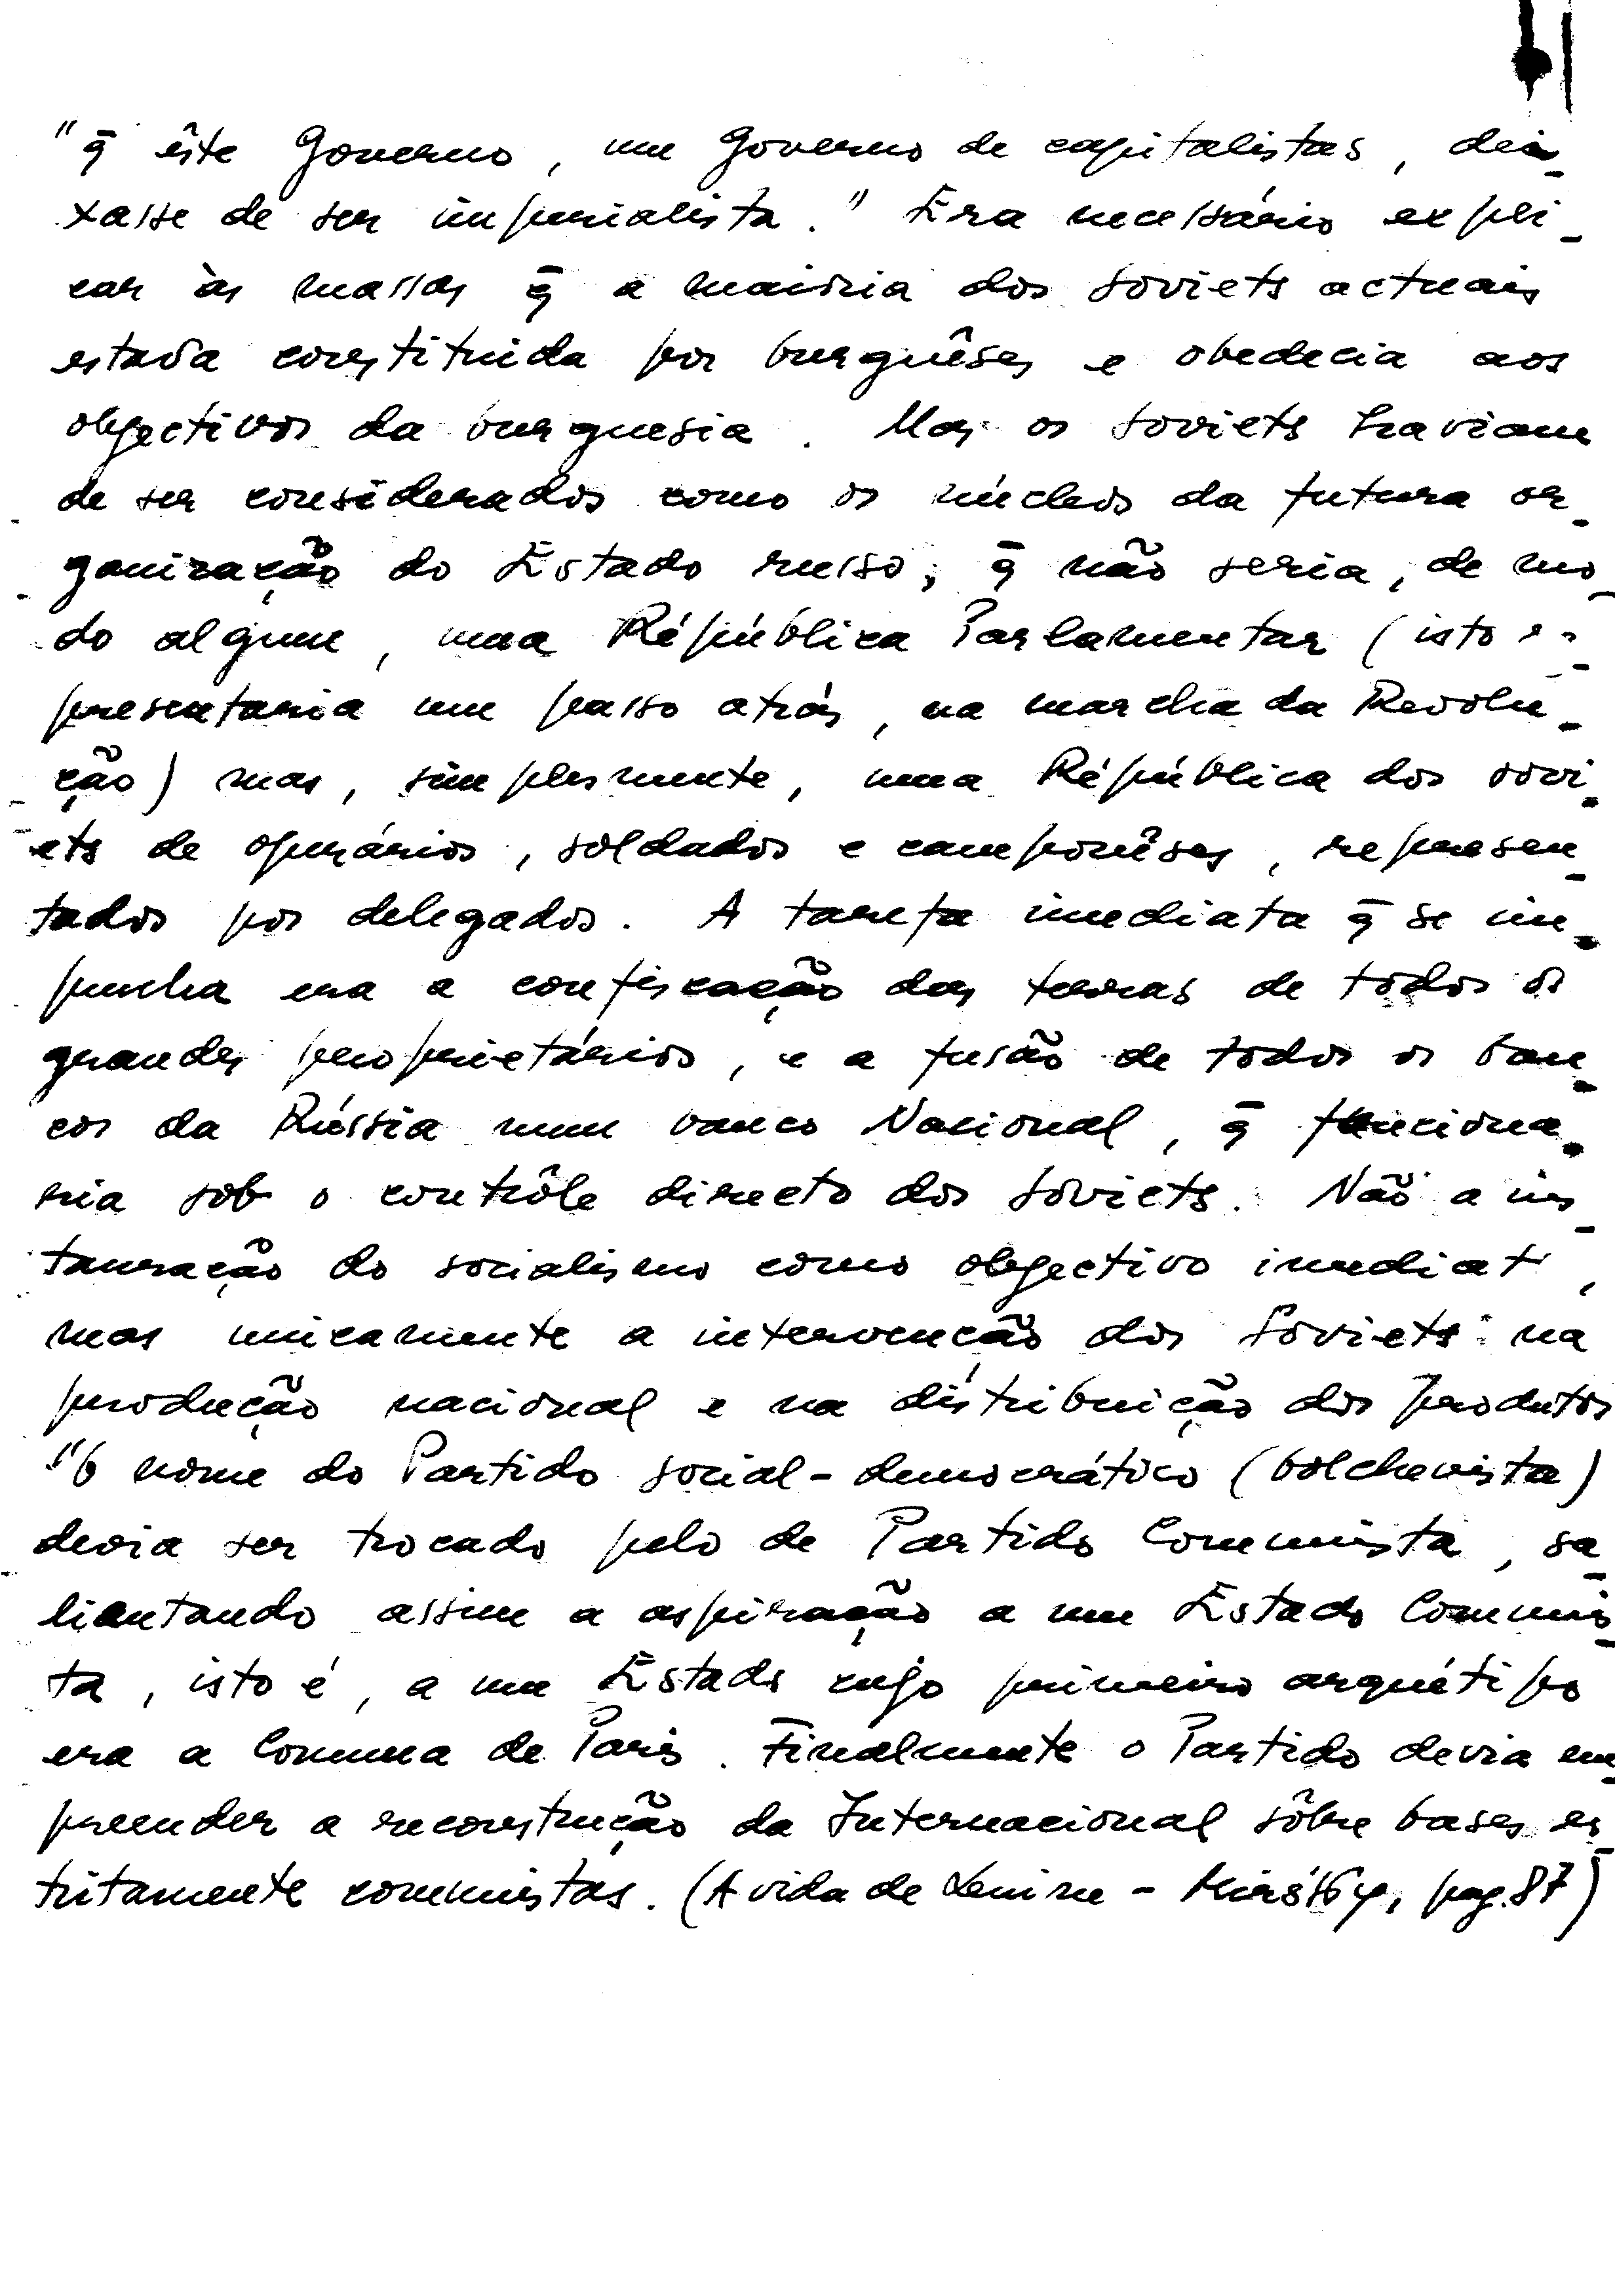 "q̄ êste Governo, um Governo de capitalistas, dei-
xasse de ser imperialista." Era necessário expli-
car às massas q̄ a maioria dos soviets actuais
estava constituida por burguêses e obedecia aos
objectivos da burguesia. Mas os soviets haviam
de ser considerados como os núcleos da futura or-
ganização do Estado russo, q̄ não seria, de mo-
do algum, uma República Parlamentar (isto re-
presentaria um passo atrás, na marcha da Revolu-
ção) mas, simplesmente, uma República dos sovi-
ets de operários, soldados e camponêses, represen-
tados por delegados. A tarefa imediata q̄ se im-
punha era a confiscação das terras de todos os
grandes proprietários, e a fusão de todos os ban-
cos da Rússia num banco Nacional, q̄ funciona-
ria sob o contrôle directo dos soviets. Não a ins-
tauração do socialismo como objectivo imediato,
mas unicamente a intervenção dos Soviets na
produção nacional e na distribuição dos produtos
"O nome do Partido social-democrático (bolchevista)
devia ser trocado pelo de Partido Comunista, sa-
lientando assim a aspiração a um Estado Comunis-
ta, isto é, a um Estado cujo primeiro arquétipo
era a Comuna de Paris. Finalmente o Partido devia em-
preender a reconstrução da Internacional sôbre bases es-
tritamente comunistas. (A vida de Lenine - , pag. 87)